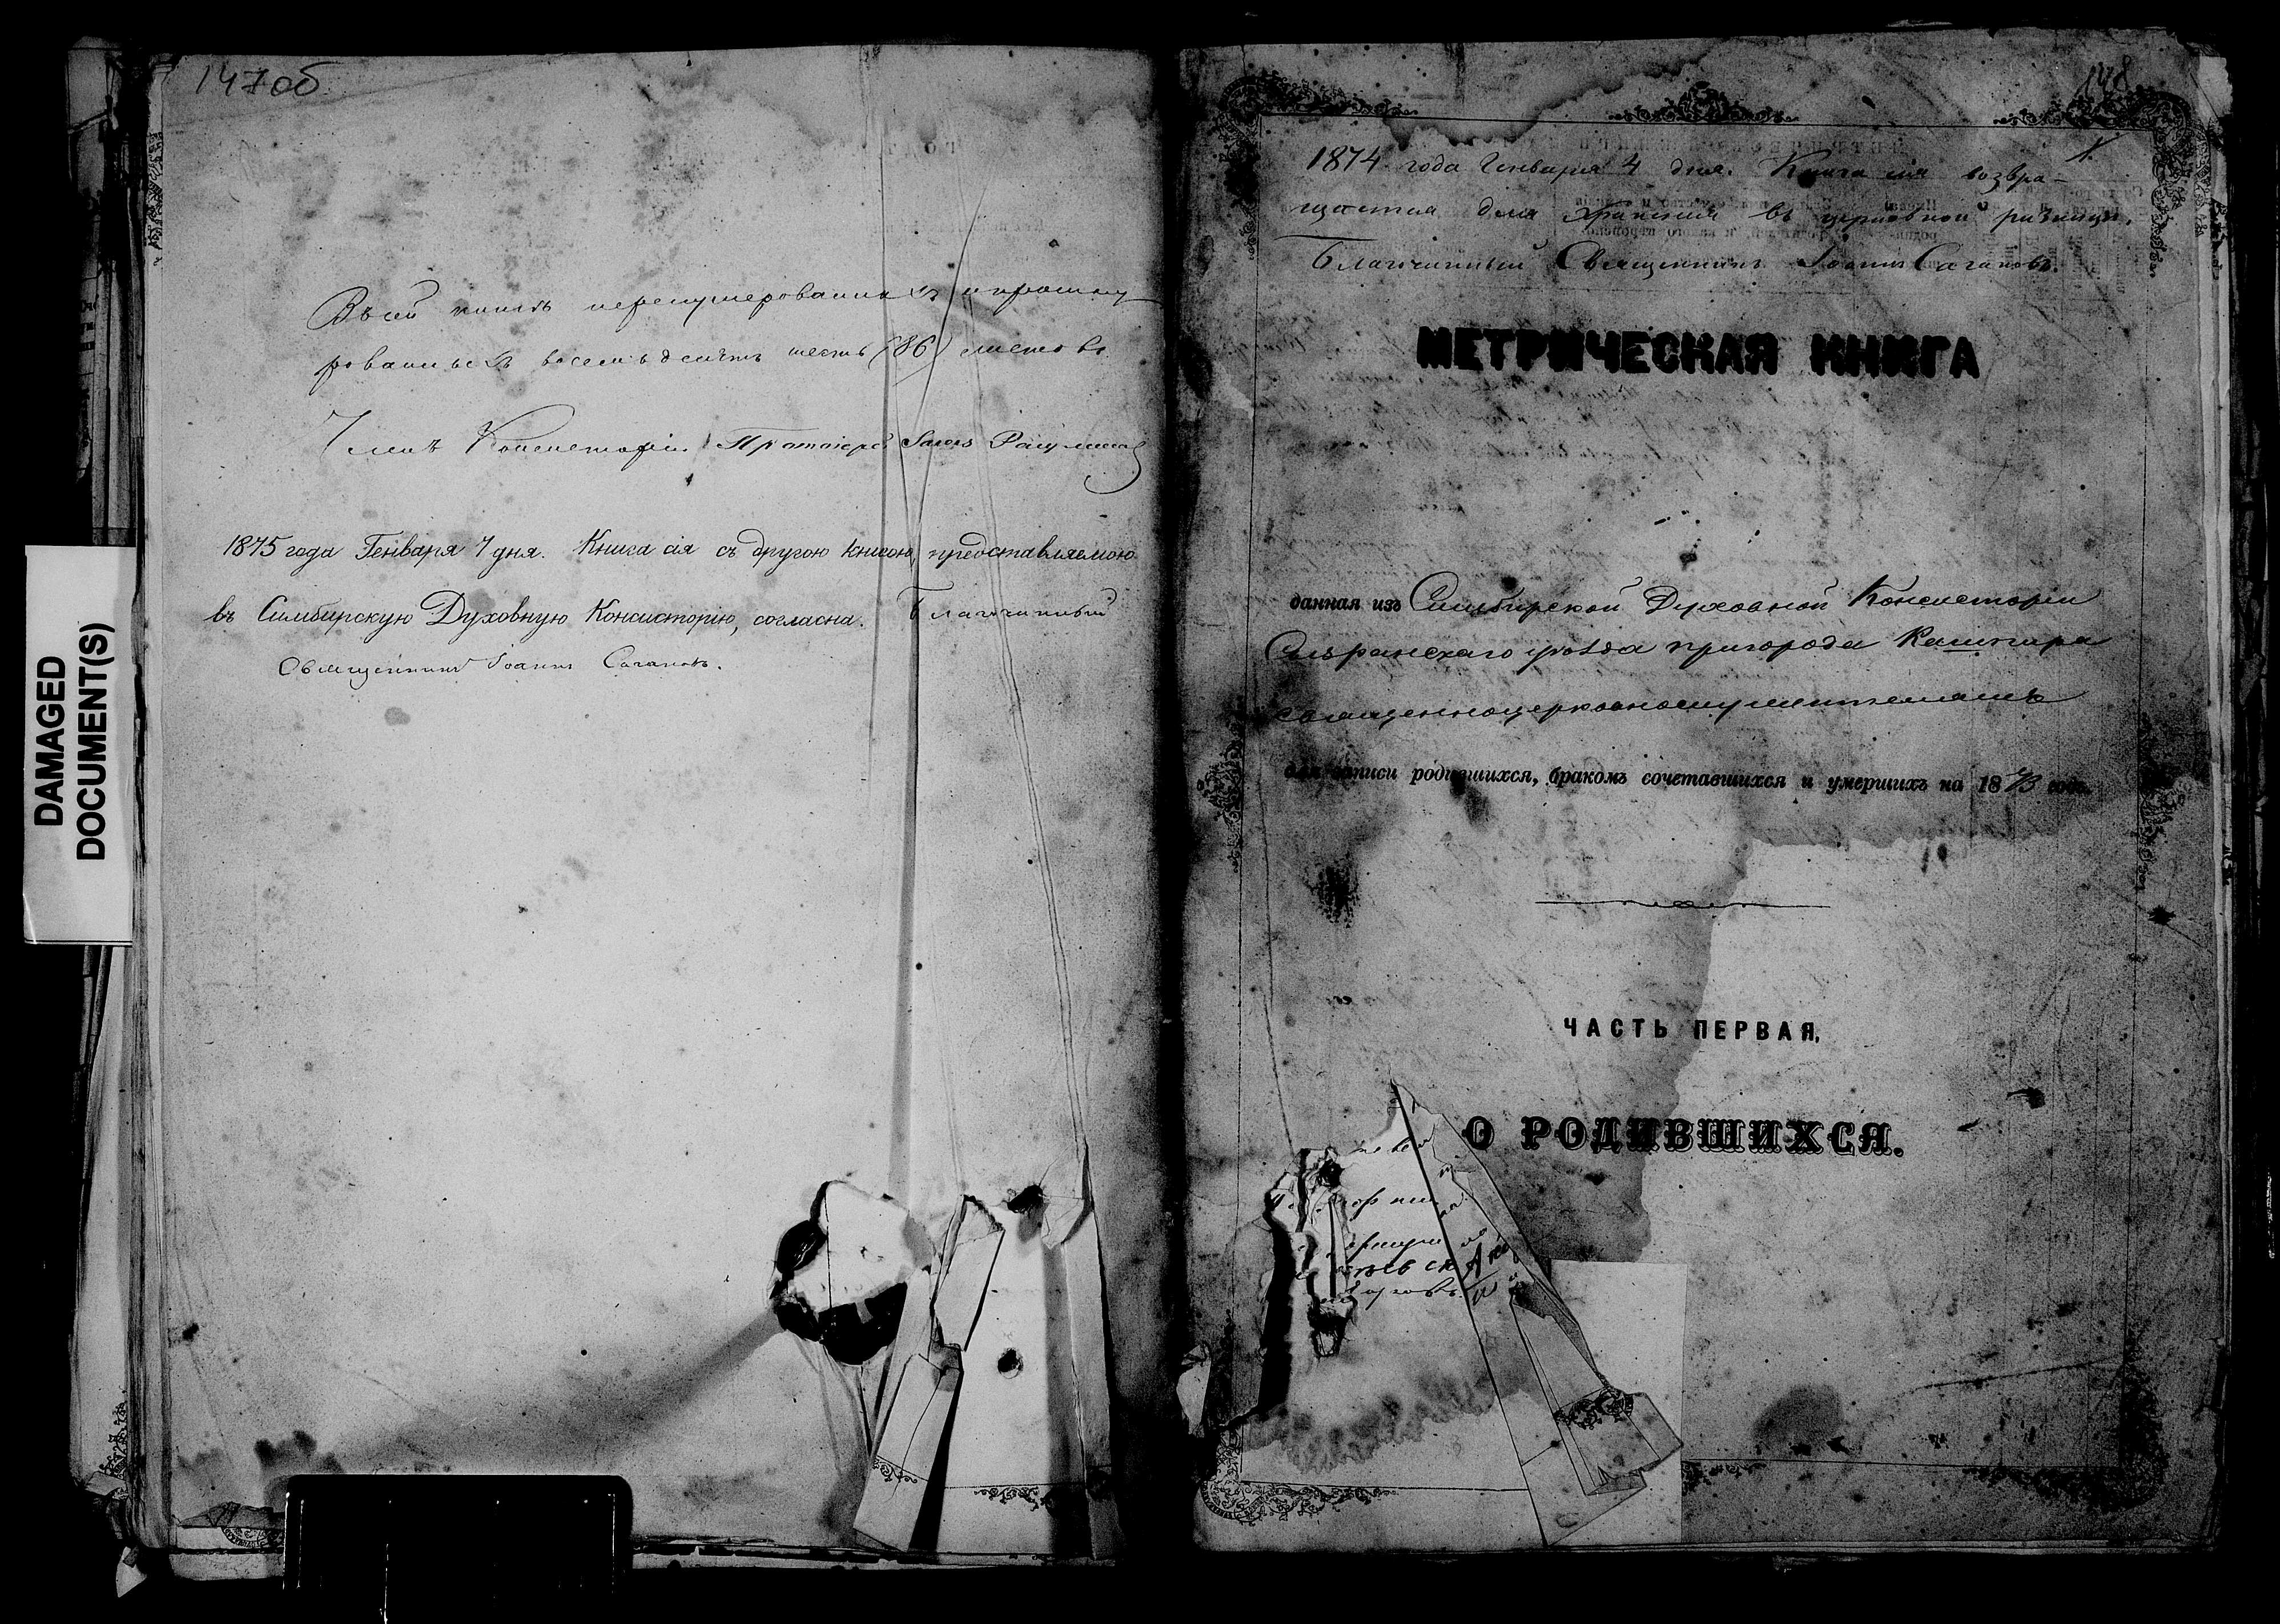 147об
Въ сей книгѣ перенумерованныхъ и прошну-
рованныхъ восемьдесятъ шесть (86) листовъ.
Членъ Консисторіи Протоіерей
1875 года Генваря 7 дня. Книга сія съ другою книгою, представляемою
въ Симбирскую Духовную Консисторію, согласна. Благочинный
Священникъ Іоаннъ Сагановъ.
DAMAGED
DOCUMENT(S)
148
1.
1874 года Генваря 4 дня. Книга сія возвра-
щается для храненія въ церковной ризницѣ.
Благочинный Священникъ Іоаннъ Сагановъ.
МЕТРИЧЕСКАЯ КНИГА
данная изъ Симбирской Духовной Консисторіи
Сызранскаго уѣзда пригорода Кашпира
священноцерковнослужителямъ
для записи родившихся, бракомъ сочетавшихся и умершихъ на 1873 годъ.
ЧАСТЬ ПЕРВАЯ,
О РОДИВШИХСЯ.